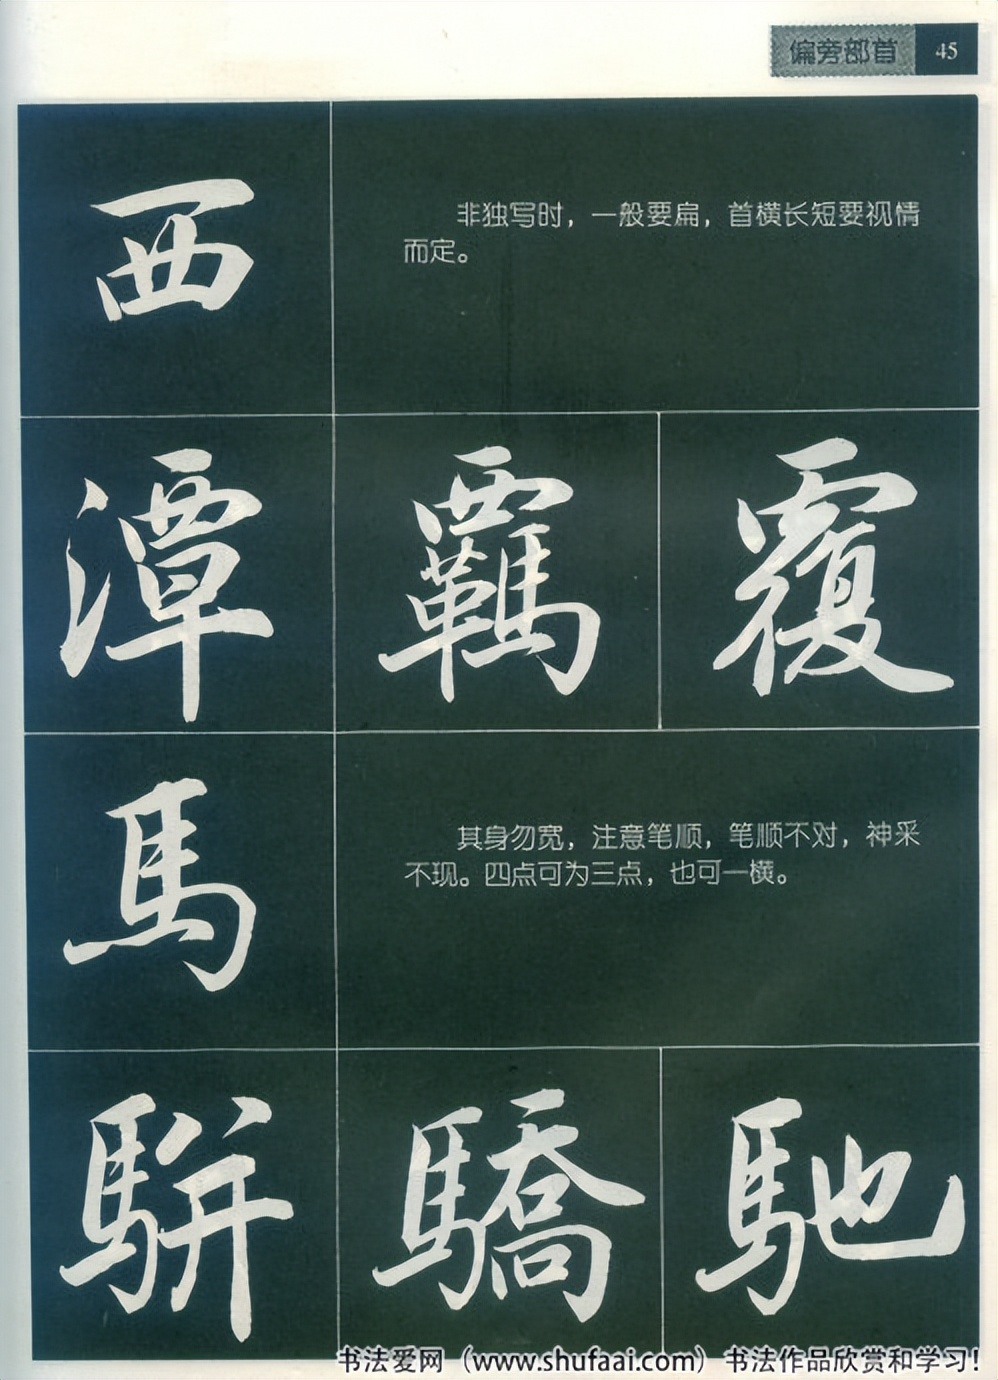 偏旁部首 45
西
非独写时，一般要扁，首横长短要视情
而定。
潭 羁 覆
馬
其身勿宽，注意笔顺，笔顺不对，神采
不现。四点可为三点，也可一横。
駢 驕 馳
书法爱网（www.shufaai.com）书法作品欣赏和学习！